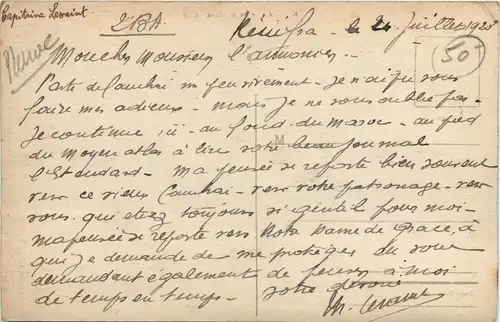 Capitaine Levaint
Kénifra le 24 Juillet 1920
50
Mon cher Monsieur l'aumônier
Parti de Cambrai un peu vivement - Je n'ai pu vous
faire mes adieux - mais je ne vous oublie pas -
Je continue ici - au fond du Maroc - au pied
du Moyen atlas à lire votre beau journal
l'Etendard - Ma pensée se reporte bien souvent
vers ce vieux Cambrai - vers votre patronage - vers
vous qui étiez toujours si gentil pour moi -
ma pensée se reporte vers Notre Dame de Grace, à
qui je demande de me protéger, du vous
demandant également de penser à moi
de temps en temps - votre dévoué